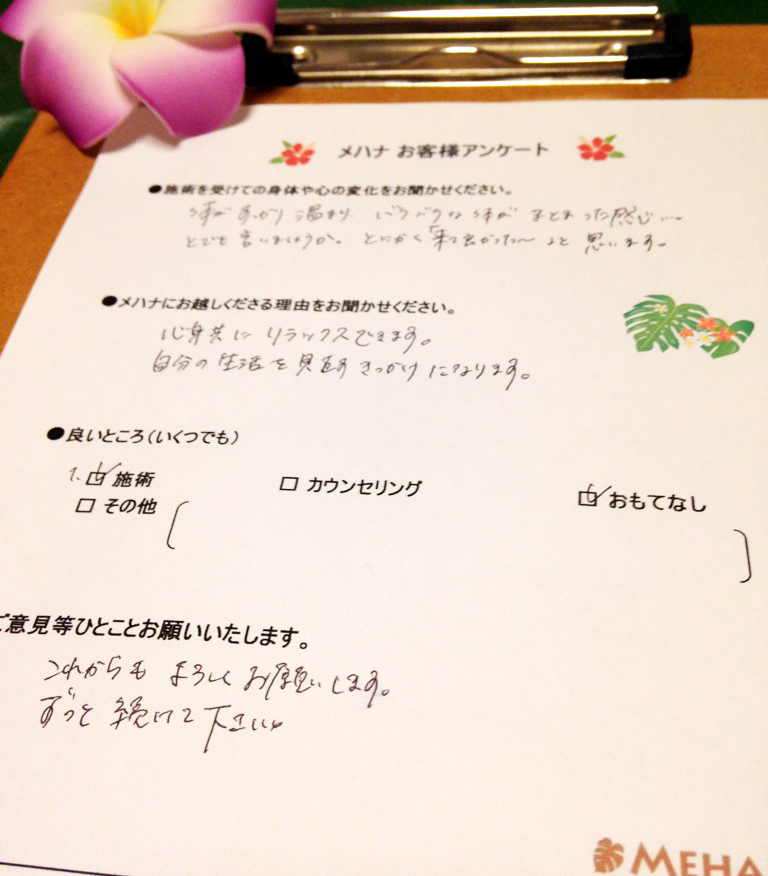 メハナ お客様アンケート
●施術を受けての身体や心の変化をお聞かせください。
体がすっかり温まり バラバラな体が まとまった感じ…
とでも言いましょうか。とにかく「来て良かった〜」と思います。
●メハナにお越しくださる理由をお聞かせください。
心身共に リラックスできます。
自分の生活を見直すきっかけになります。
●良いところ（いくつでも）
1. ☑ 施術 □ カウンセリング ☑ おもてなし
□ その他
ご意見等ひとことお願いいたします。
これからも よろしくお願いします。
ずっと 続けて下さい。
MEHA